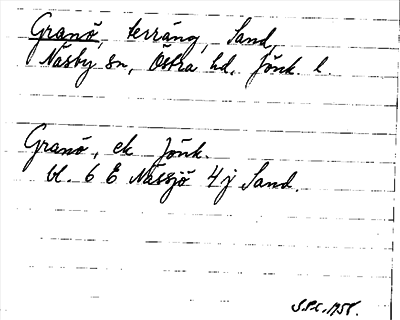 Granö, terräng, Sand,
Näsby sn, Östra hd, Jönk. l.
Granö, ek Jönk.
bl. 6 E Nässjö 4j Sand.